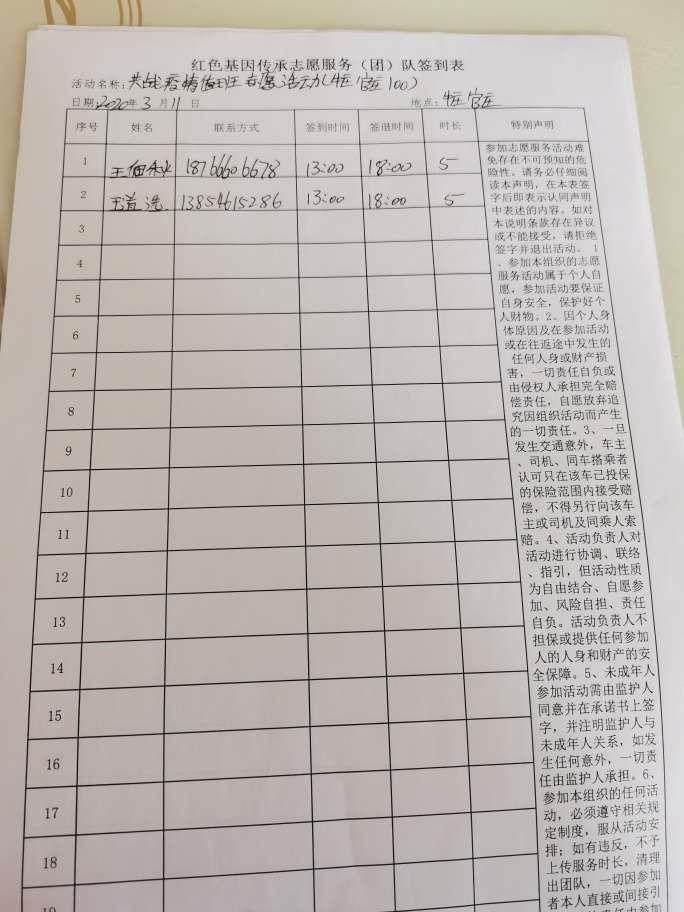 红色基因传承志愿服务（团）队签到表
活动名称：共战疫情值班志愿活动（ 官庄100）
日期2020年3月11日 地点： 官庄
序号 姓名 联系方式 签到时间 签退时间 时长 特别声明
1 王 18766606678 13:00 18:00 5
2 王 选 13854615286 13:00 18:00 5
3
4
5
6
7
8
9
10
11
12
13
14
15
16
17
18
19
参加志愿服务活动难
免存在不可预知的危
险性。请务必仔细阅
读本声明，在本表签
字后即表示认同声明
中表述的内容。如对
本说明条款存在异议
或不能接受，请拒绝
签字并退出活动。 1
、参加本组织的志愿
服务活动属于个人自
愿，参加活动要保证
自身安全，保护好个
人财物。2、因个人身
体原因及在参加活动
或在往返途中发生的
任何人身或财产损
害，一切责任自负或
由侵权人承担完全赔
偿责任，自愿放弃追
究因组织活动而产生
的一切责任。3、一旦
发生交通意外，车主
、司机、同车搭乘者
认可只在该车已投保
的保险范围内接受赔
偿，不得另行向该车
主或司机及同乘人索
赔。4、活动负责人对
活动进行协调、联络
、指引，但活动性质
为自由结合、自愿参
加、风险自担、责任
自负。活动负责人不
担保或提供任何参加
人的人身和财产的安
全保障。5、未成年人
参加活动需由监护人
同意并在承诺书上签
字，并注明监护人与
未成年人关系，如发
生任何意外，一切责
任由监护人承担。6、
参加本组织的任何活
动，必须遵守相关规
定制度，服从活动安
排；如有违反，不予
上传服务时长，清理
出团队，一切因参加
者本人直接或间接引